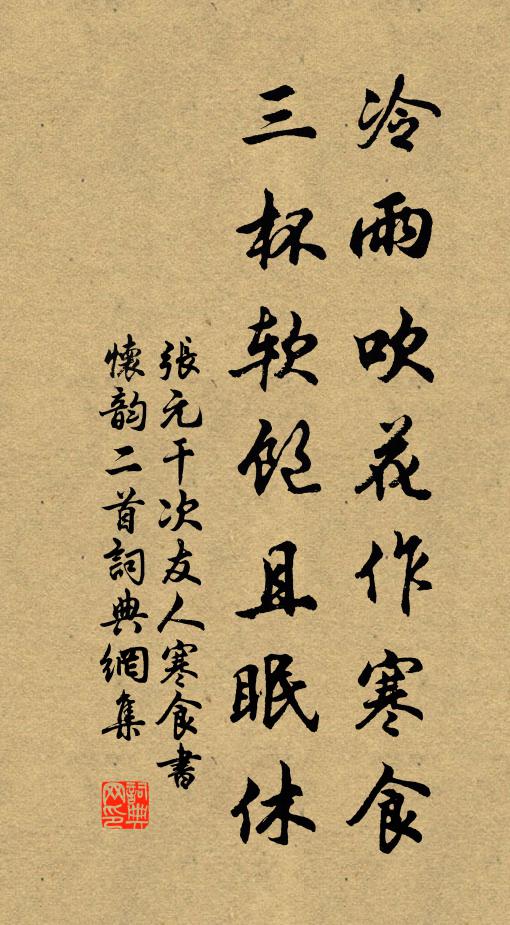 冷雨吹花作寒食
三杯軟飽且眠休
張元干次友人寒食書
懷韵二首詞典網集
詞典
网印